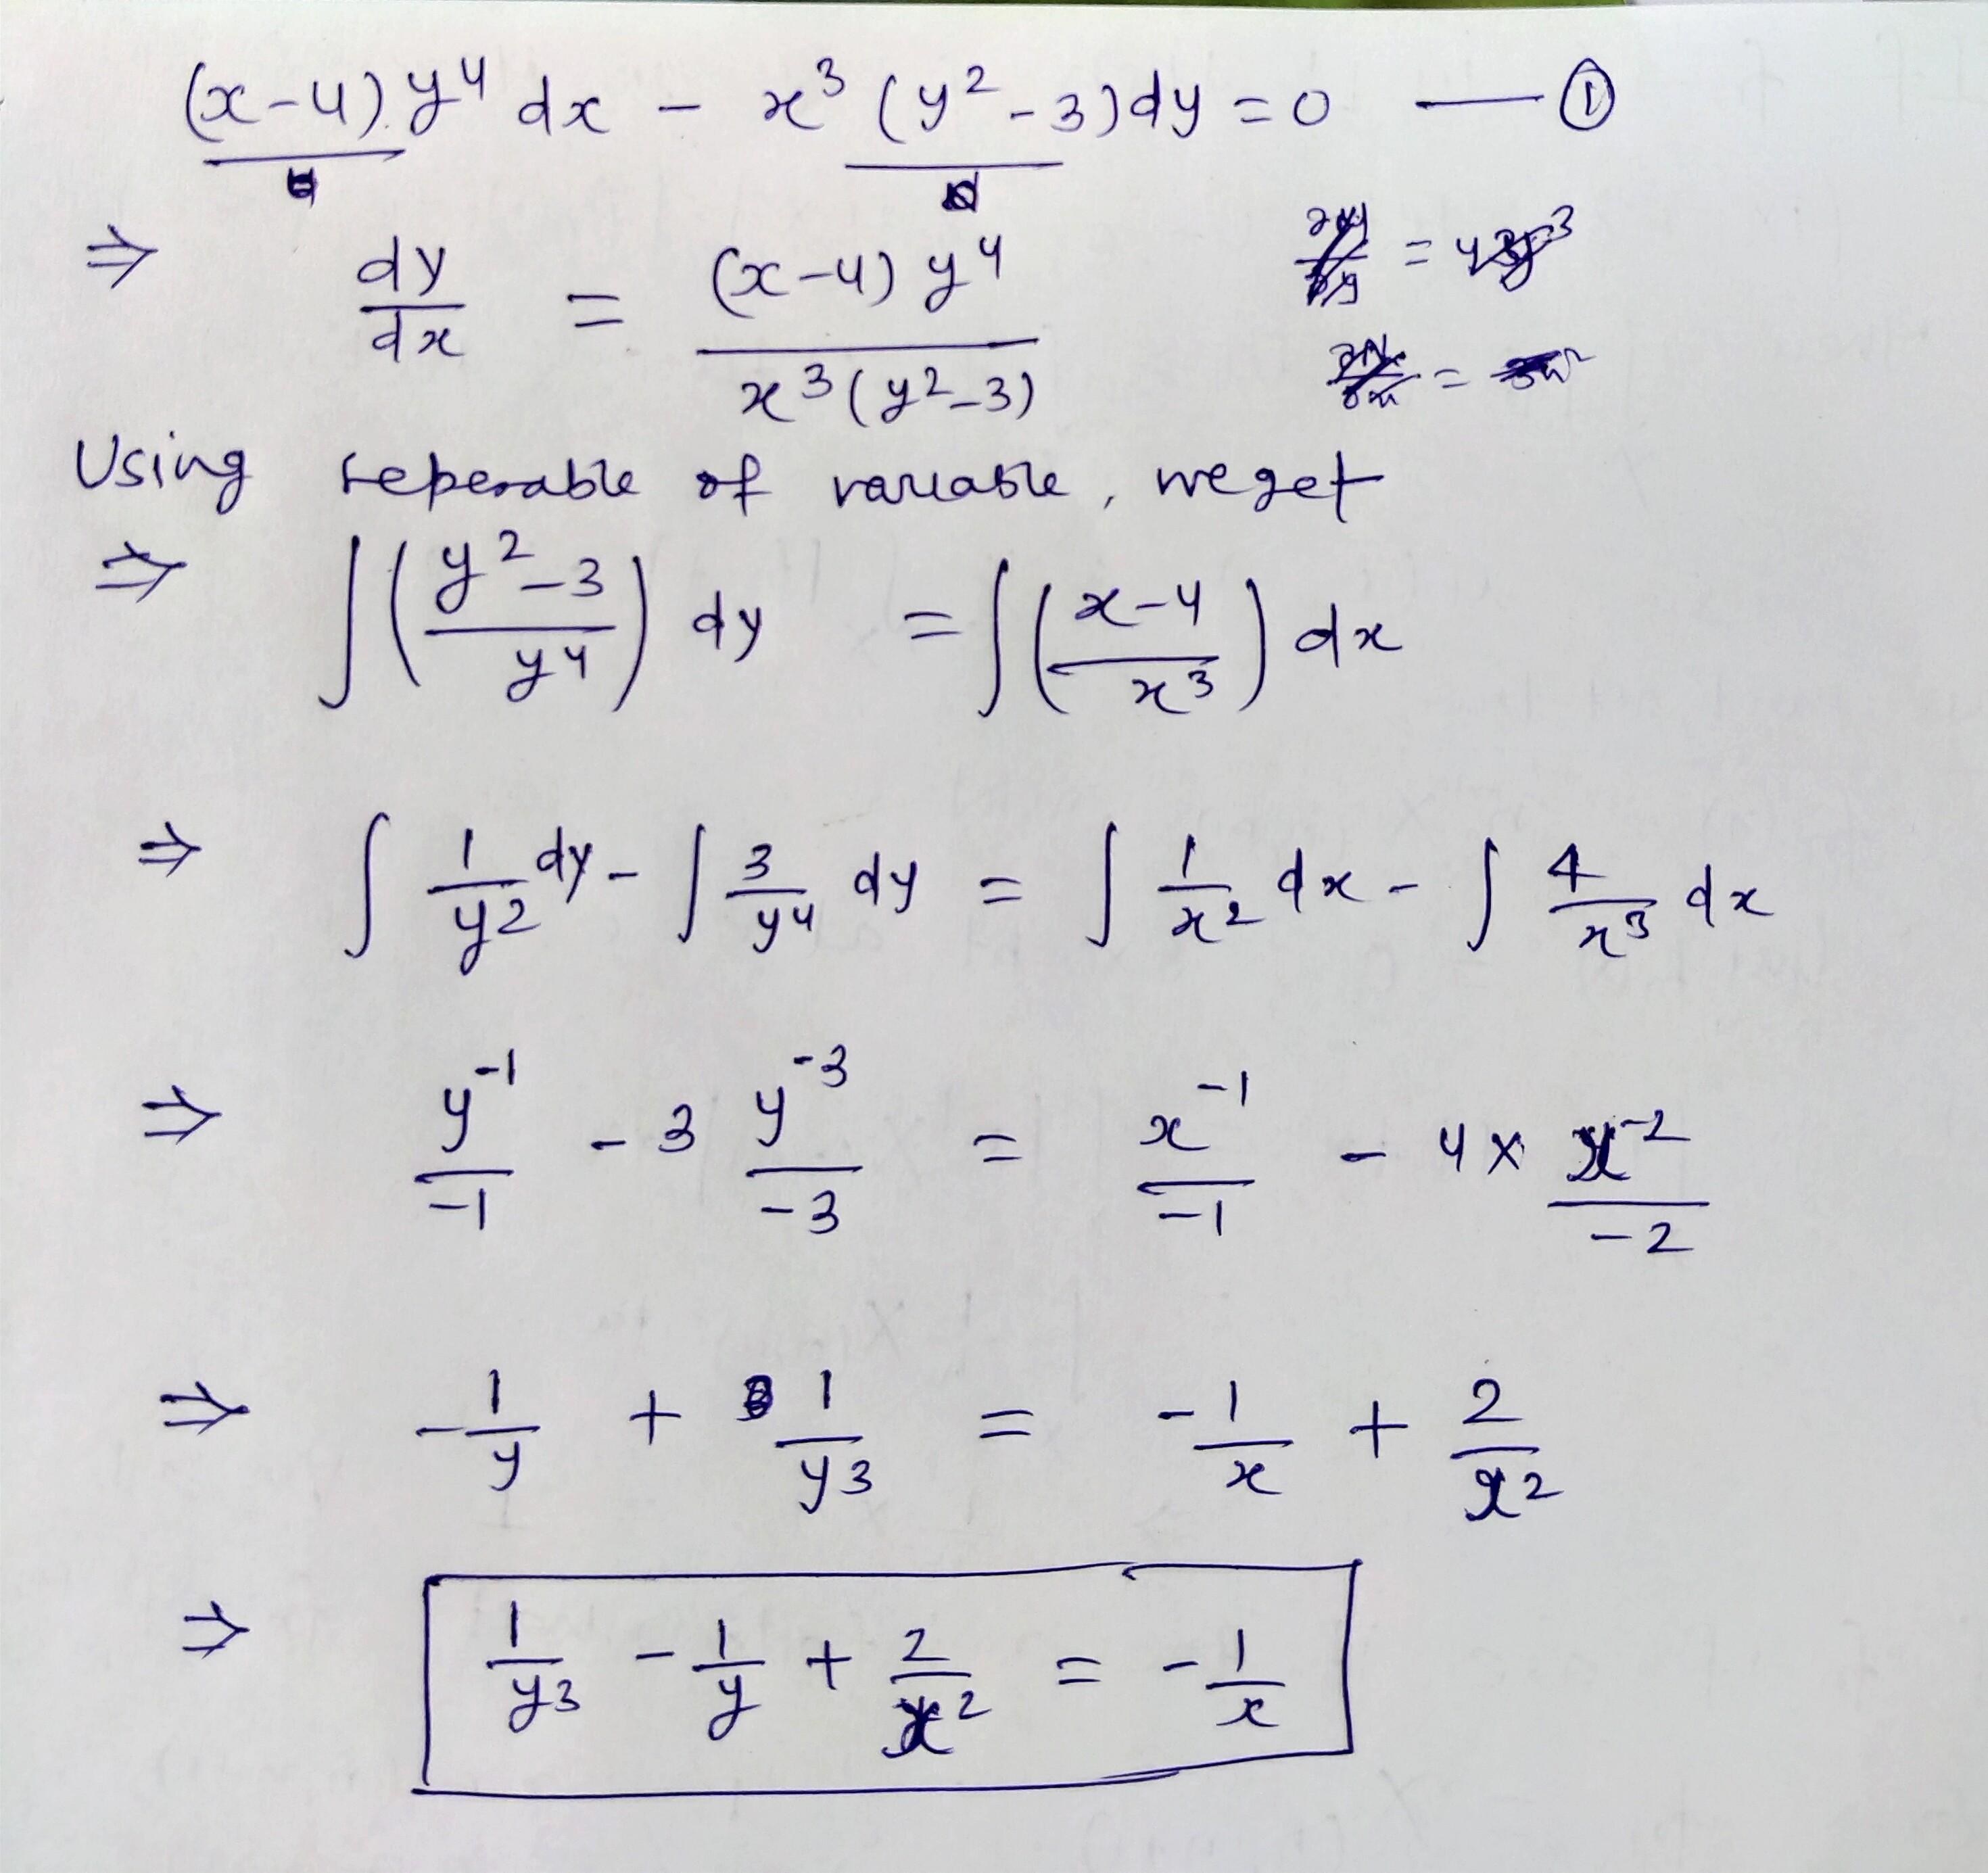 (x-4) y⁴ dx - x³ (y²-3) dy = 0 — ①
⇒ dy/dx = (x-4) y⁴ / x³(y²-3)
Using seperable of variable, we get
⇒ ∫ ((y²-3)/y⁴) dy = ∫ ((x-4)/x³) dx
⇒ ∫ 1/y² dy - ∫ 3/y⁴ dy = ∫ 1/x² dx - ∫ 4/x³ dx
⇒ y⁻¹/-1 - 3 y⁻³/-3 = x⁻¹/-1 - 4 × x⁻²/-2
⇒ -1/y + 1/y³ = -1/x + 2/x²
⇒ 1/y³ - 1/y + 2/x² = -1/x